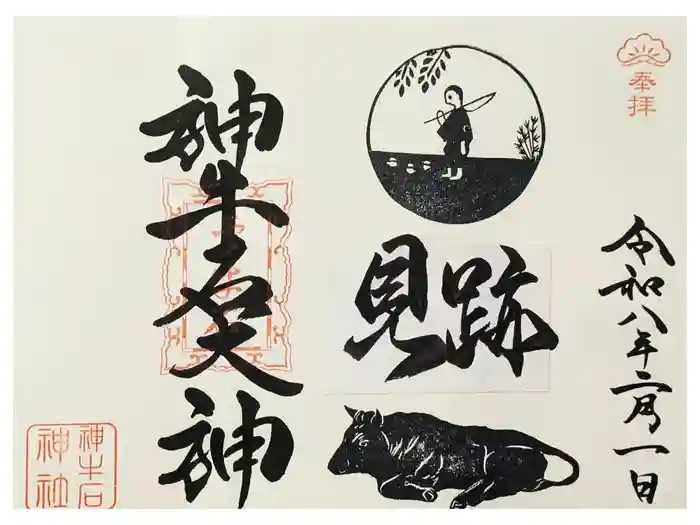 奉拝
令和八年二月一日
見跡
神牛石天神
神牛石
神社